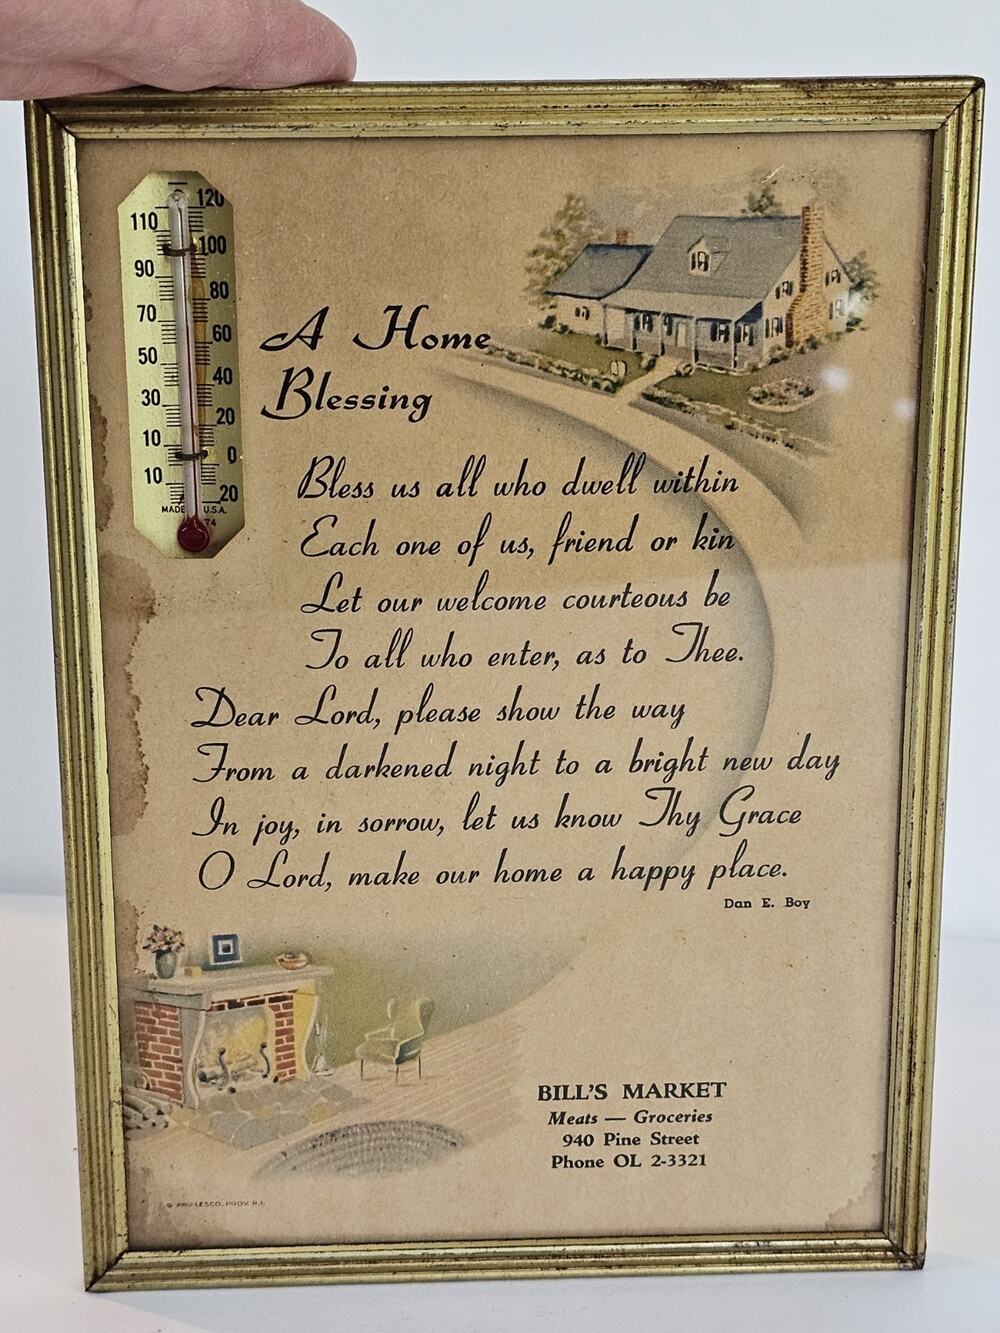 120
110
100
90
80
70
60
50
40
30
20
10
0
10
20
MADE U.S.A.
74
A Home
Blessing
Bless us all who dwell within
Each one of us, friend or kin
Let our welcome courteous be
To all who enter, as to Thee.
Dear Lord, please show the way
From a darkened night to a bright new day
In joy, in sorrow, let us know Thy Grace
O Lord, make our home a happy place.
Dan E. Boy
BILL'S MARKET
Meats — Groceries
940 Pine Street
Phone OL 2-3321
PROV. R.I.